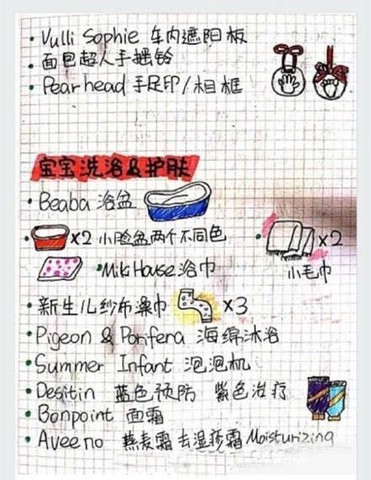 · Vulli Sophie 车内遮阳板
· 面包超人手摇铃
· Pearhead 手足印/相框
宝宝洗浴&护肤
· Beaba 浴盆
x2 · 小脸盆两个不同色
· x2
· Milk House 浴巾
小毛巾
· 新生儿纱布澡巾 x3
· Pigeon & Ponifera 海绵沐浴
· Summer Infant 泡泡机
· Desitin 蓝色预防 紫色治疗
· Bonpoint 面霜
· Aveeno 燕麦霜去湿疹霜 Moisturizing